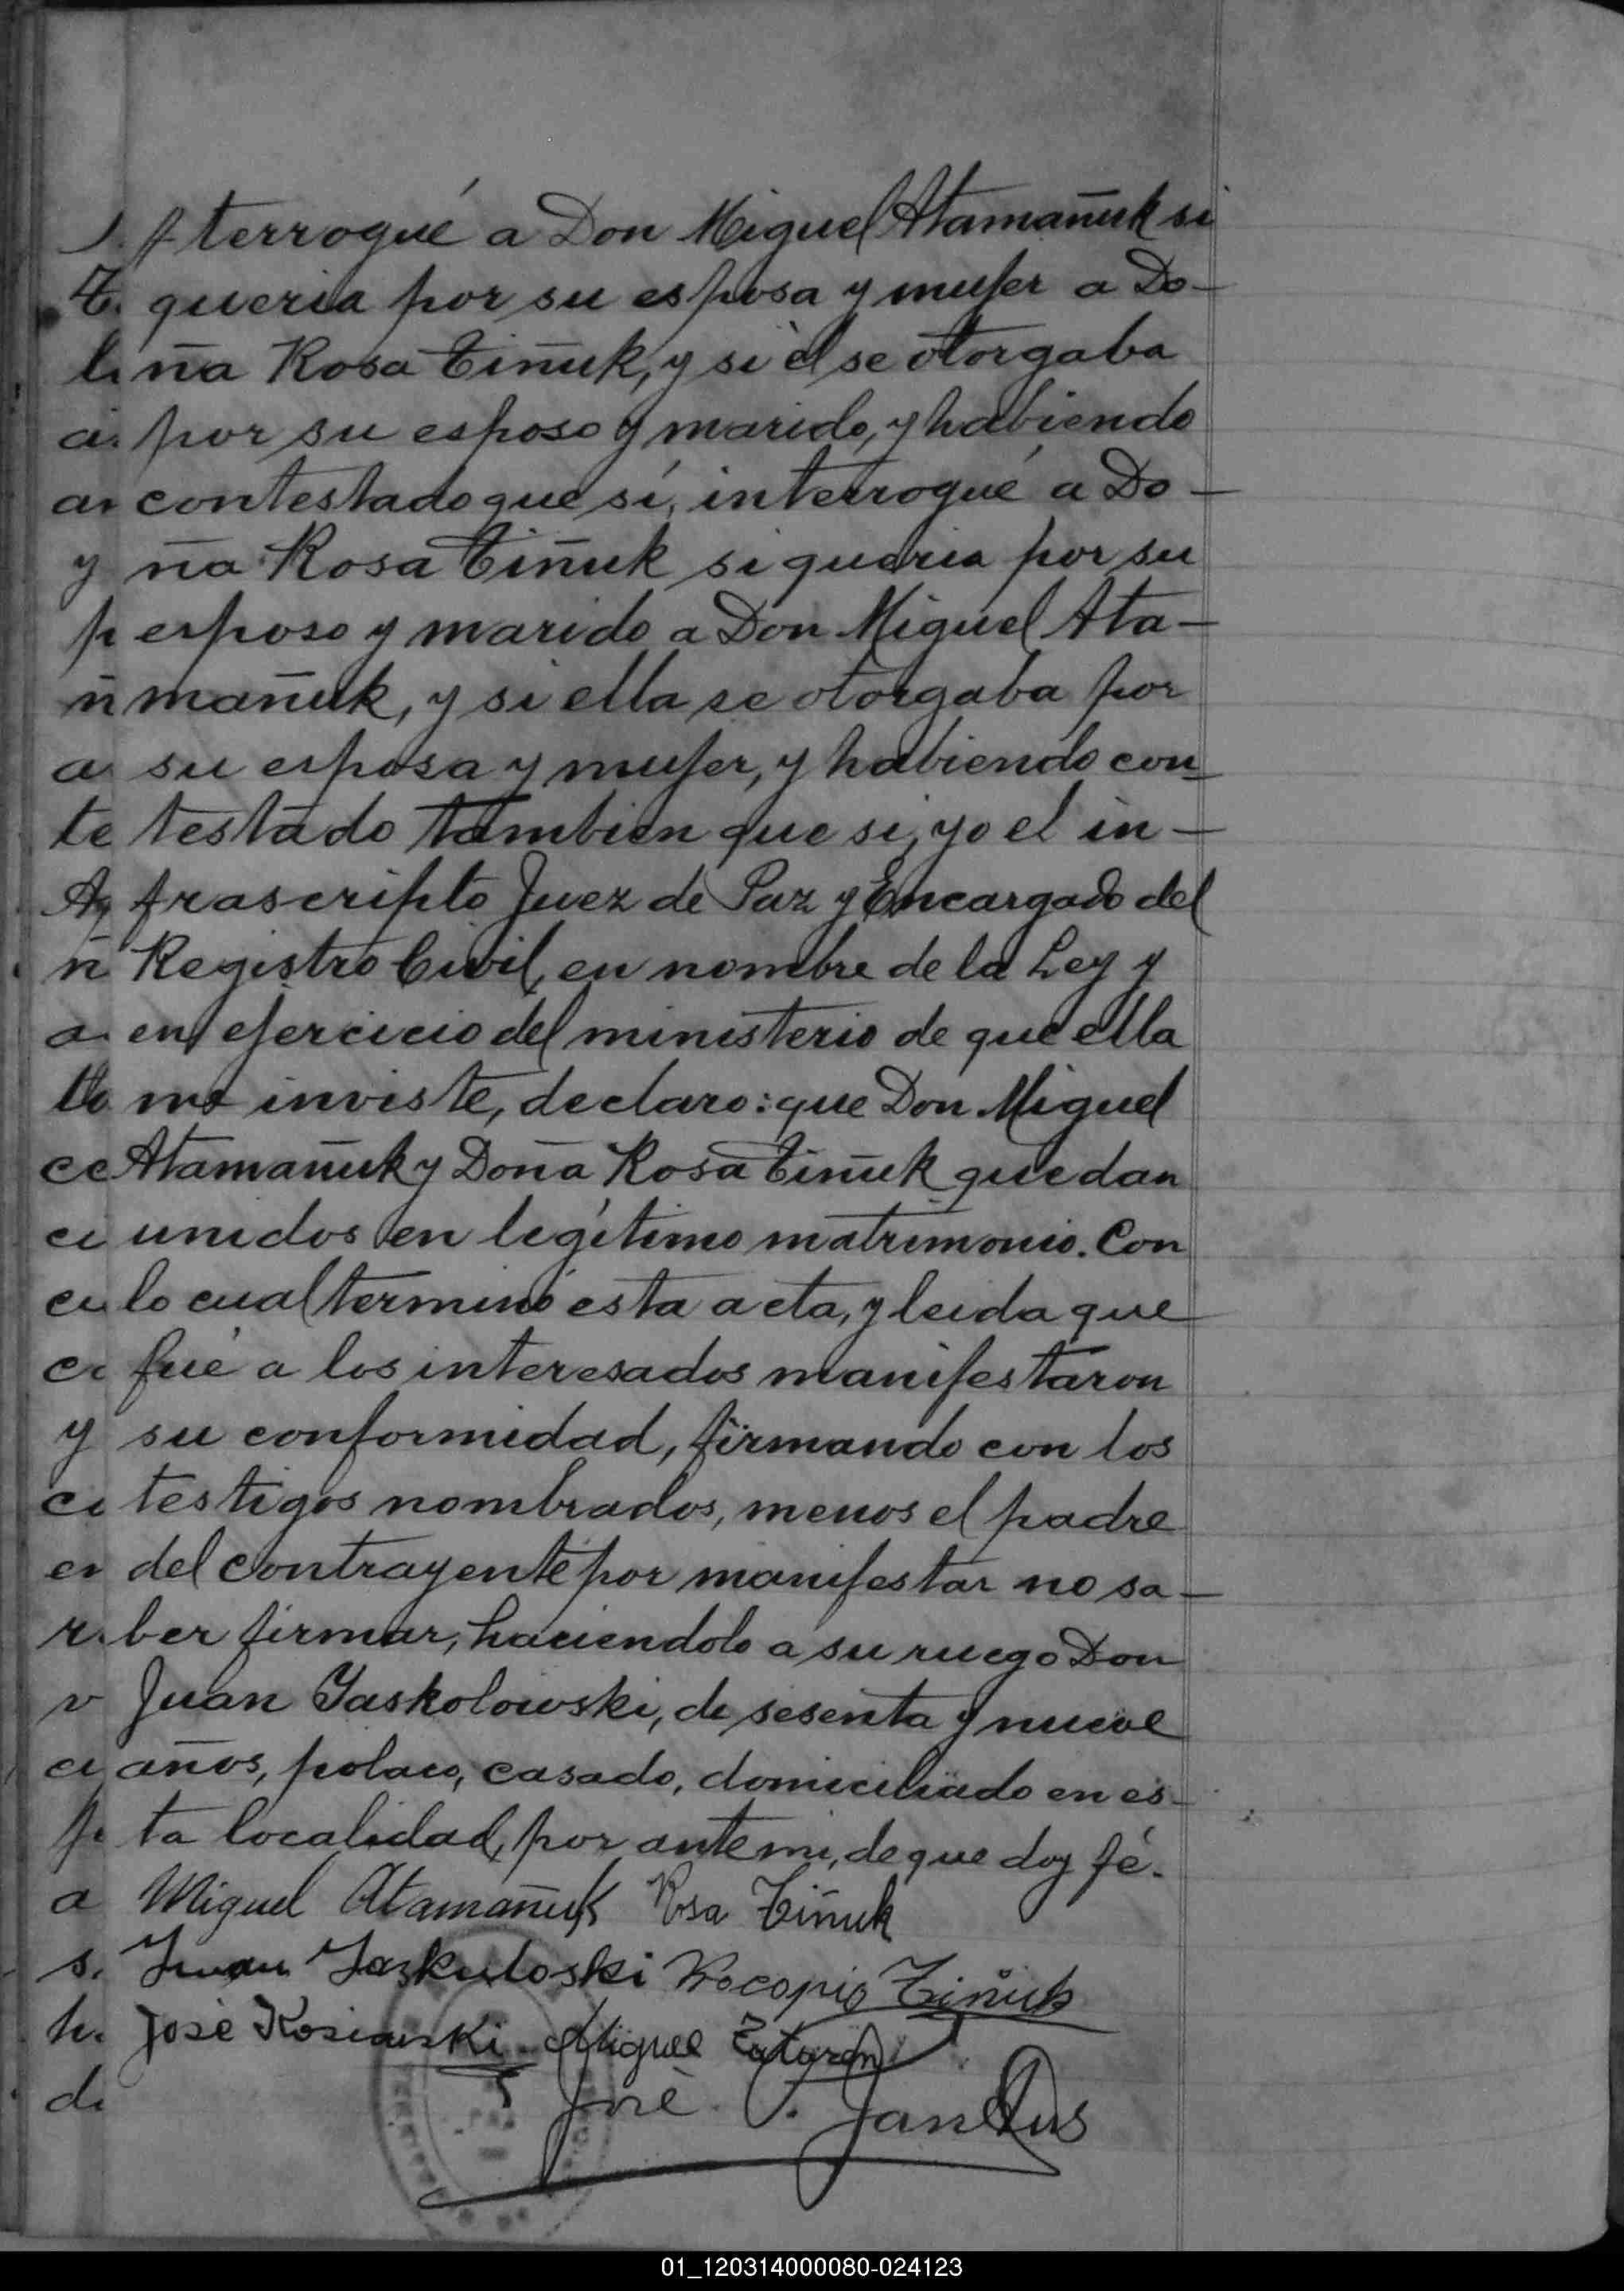 terrogué a Don Miguel Atamañuk si
queria por su esposa y mujer a Do-
ña Rosa Tiñuk, y si él se otorgaba
por su esposo y marido, y habiendo
contestado que sí, interrogué a Do-
ña Rosa Tiñuk si queria por su
esposo y marido a Don Miguel Ata-
mañuk, y si ella se otorgaba por
su esposa y mujer, y habiendo con-
testado tambien que si, yo el in-
frascripto Juez de Paz y Encargado del
Registro Civil, en nombre de la Ley y
en ejercicio del ministerio de que ella
me inviste, declaro: que Don Miguel
Atamañuk y Doña Rosa Tiñuk quedan
unidos en legítimo matrimonio. Con
lo cual terminó esta acta, y leida que
fué a los interesados manifestaron
su conformidad, firmando con los
testigos nombrados, menos el padre
del contrayente por manifestar no sa-
ber firmar, haciendolo a su ruego Don
Juan Yaskolowski, de sesenta y nueve
años, polaco, casado, domiciliado en es-
ta localidad, por ante mi, de que doy fé.
Miguel Atamañuk Rosa Tiñuk
Juan Jaskuloski Procopio Tiñuk
José Kosinski Miguel
José
01_120314000080-024123